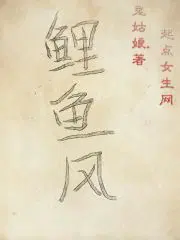 起点女生网
姑娘著
鲤鱼风